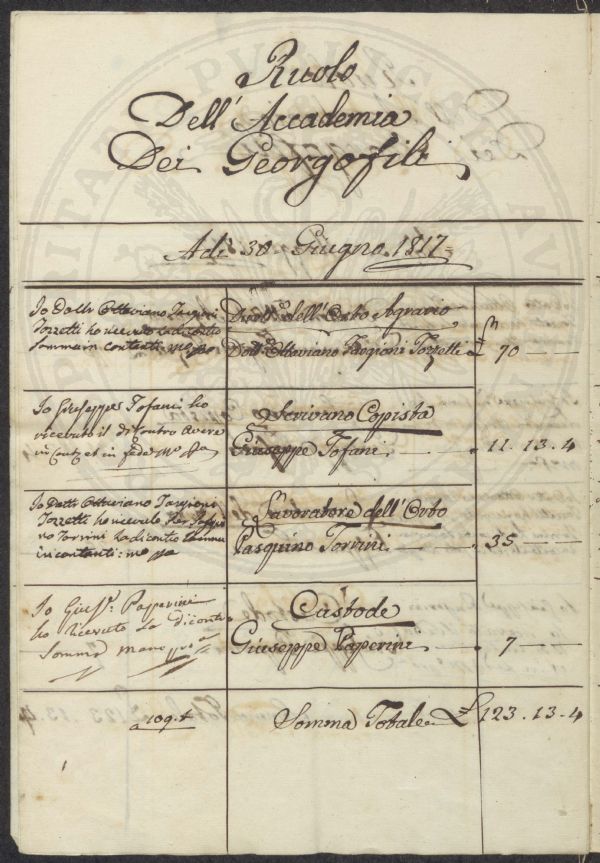 Ruolo
Dell' Accademia
Dei Georgofili
Adì 30 Giugno 1817
Io Dottr Ottaviano Targioni
Tozzetti ho ricevuto la di contro
Somma in contanti Mo ppa
Dirett.re dell'Orto Agrario
Dott.re Ottaviano Targioni Tozzetti £ 70 — —
Io Giuseppe Tofani ho
ricevuto il di contro Avere
in Cont. et in fede Mo ppa
Scrivano Copista
Giuseppe Tofani — . 11. 13. 4
Io Dottr Ottaviano Targioni
Tozzetti ho ricevuto per Pasqui
no Torrini la di contro Somma
in contanti: mo ppa
Lavoratore dell'Orto
Pasquino Torrini — . 35 — —
Io Gius.e Papperini
ho ricevuto la di contro
Somma mano ppa
Custode
Giuseppe Paperini . 7 — —
109.t
Somma Totale £ 123. 13. 4